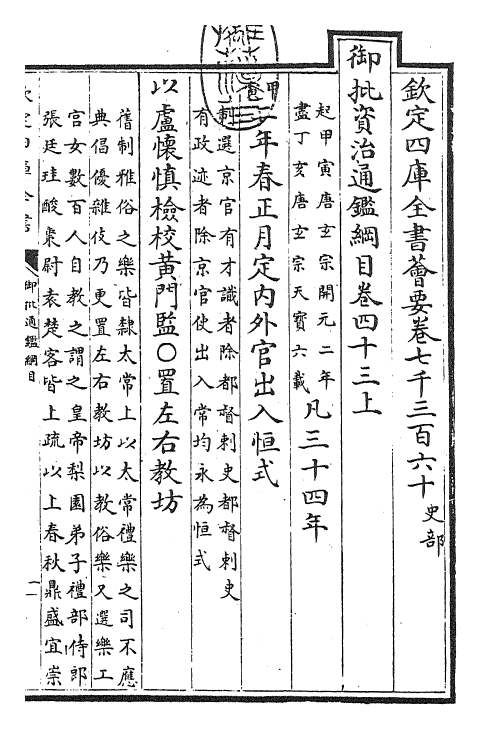 欽定四庫全書薈要卷七千三百六十 史部
御批資治通鑑綱目卷四十三上
起甲寅唐玄宗開元二年
盡丁亥唐玄宗天寶六載 凡三十四年
甲寅 二年春正月定內外官出入恒式
制選京官有才識者除都督刺史都督刺史
有政迹者除京官使出入常均永為恒式
以盧懷慎檢校黃門監○置左右教坊
舊制雅俗之樂皆隸太常上以太常禮樂之司不應
典倡優雜伎乃更置左右教坊以教俗樂又選樂工
宮女數百人自教之謂之皇帝梨園弟子禮部侍郎
張廷珪酸棗尉袁楚客皆上疏以上春秋鼎盛宜崇
欽定四庫全書
御批通鑑綱目
一